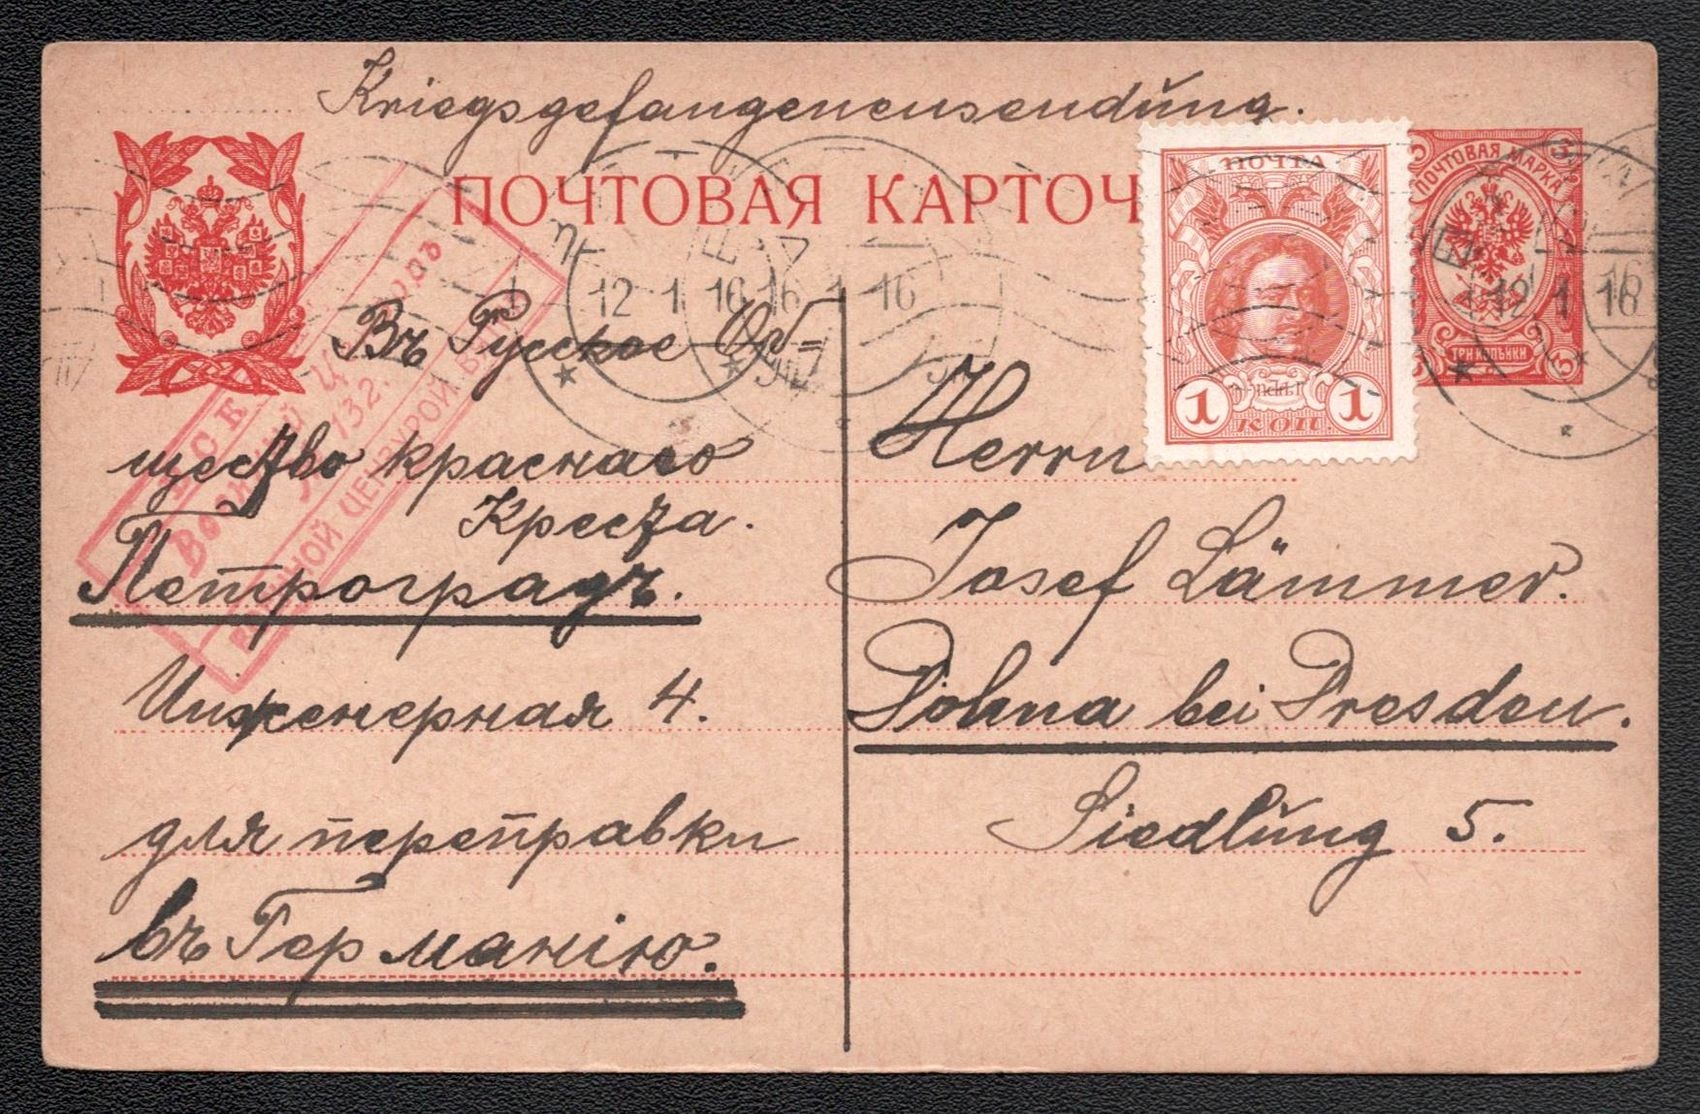 Kriegsgefangenensendung.
ПОЧТОВАЯ КАРТОЧ
ПОЧТА
1 1
КОП
ПОЧТОВАЯ МАРКА
3 3
ТРИ КОПѢЙКИ
3 3
12 1 16
16 1 16
12 1 16
Въ Русское Об-
щество краснаго
Креста.
Петроградъ.
Инженерная 4.
для переправки
въ Германію.
Herrn
Josef Lämmer.
Dohna bei Dresden.
Siedlung 5.
132.
ВОЕННОЙ ЦЕНЗУРОЙ